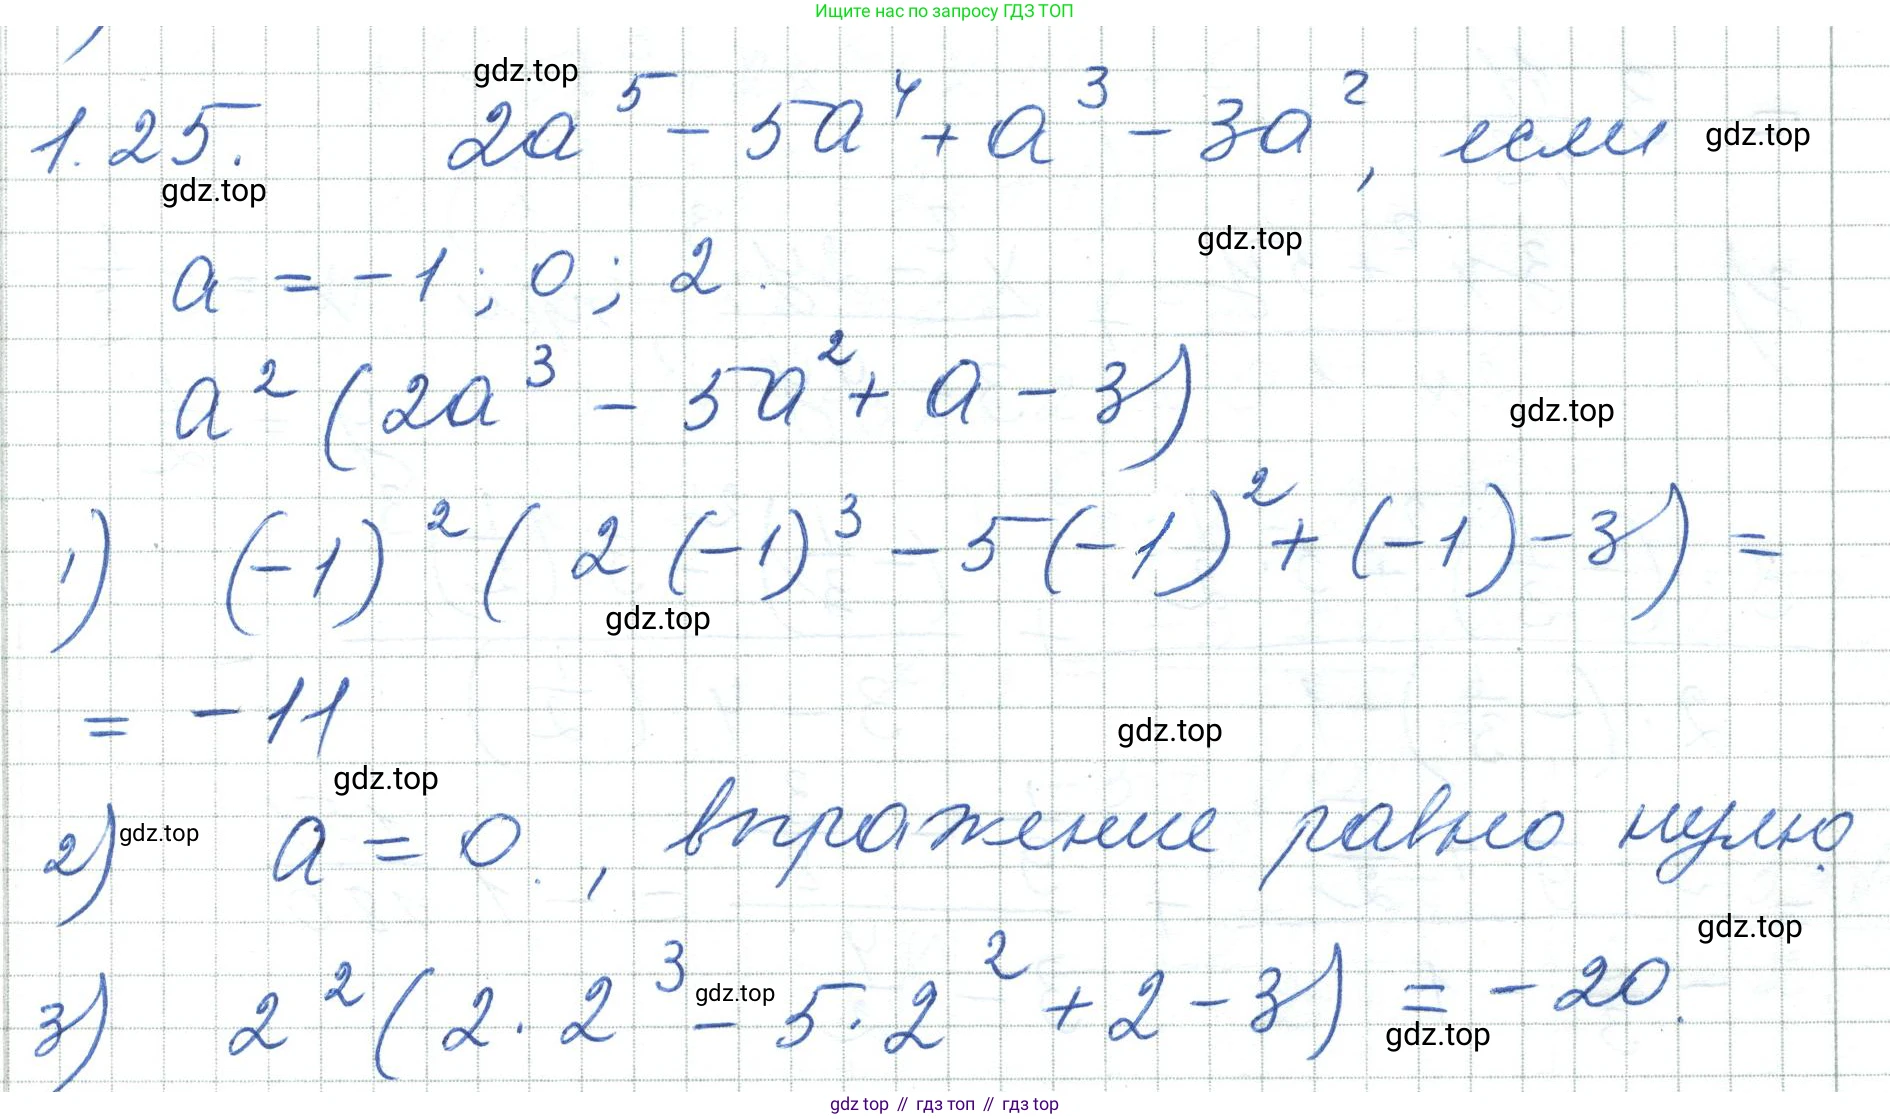 Ищите нас по запросу ГДЗ ТОП
gdz.top
1.25. 2a⁵ - 5a⁴ + a³ - 3a², если gdz.top
gdz.top
gdz.top
a = -1; 0; 2.
a² (2a³ - 5a² + a - 3)
gdz.top
1) (-1)² (2 (-1)³ - 5 (-1)² + (-1) - 3) =
gdz.top
= -11
gdz.top
gdz.top
2) gdz.top a = 0, выражение равно нулю.
gdz.top
3) 2² (2 · 2³ - 5 · 2² + 2 - 3) = -20.
gdz.top
gdz.top
gdz top // гдз топ // гдз top